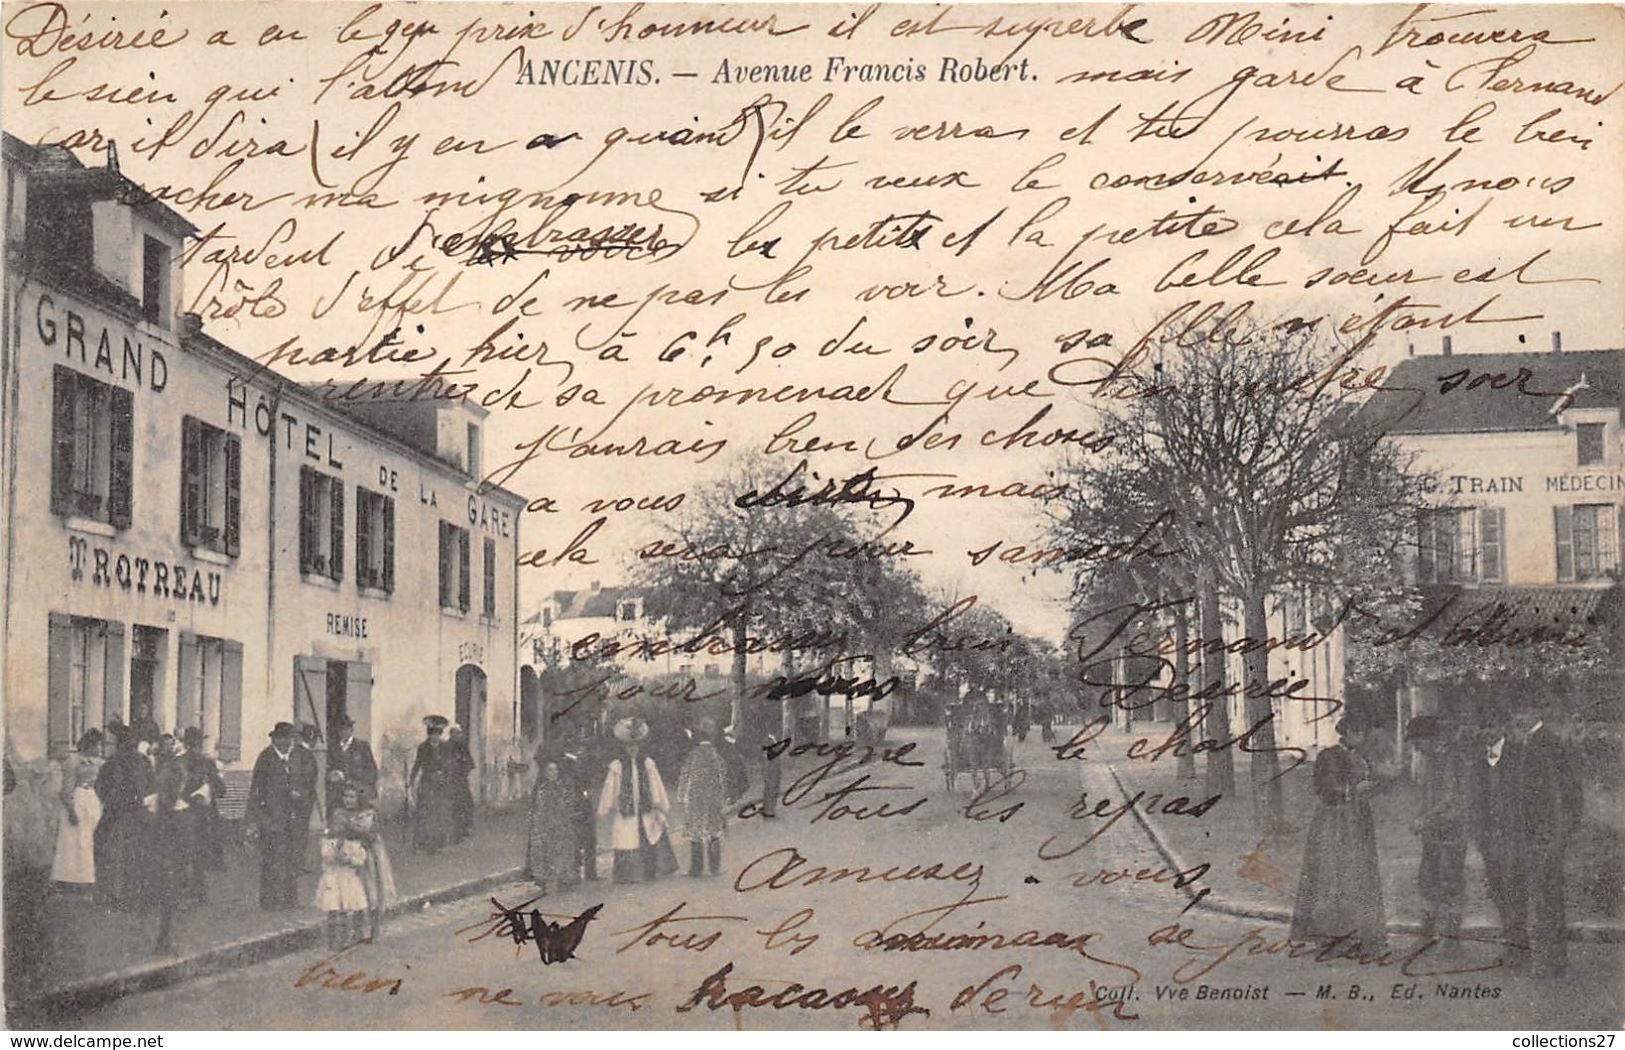 Désirée a eu le prix d'honneur il est superbe Mimi trouvera
le sien qui l'attend mais garde à Fernand
ANCENIS. — Avenue Francis Robert.
car il dira (il y en a quand) il le verra et tu pourras le bien
cacher ma mignonne si tu veux le conserver. Il nous
tardent d'embrasser les petits et la petite cela fait un
drôle d'effet de ne pas les voir. Ma belle sœur est
partie hier à 6h.50 du soir, sa fille n'étant
rentrée de sa promenade que dimanche soir,
j'aurais bien des choses
a vous dire mais
cela sera pour samedi
embrassez bien Fernand et Mimi
pour nous Désirée
soigne le chat
a tous les repas
Amusez-vous,
tous les animaux se portent
bien ne vous tracassez de rien
GRAND HÔTEL DE LA GARE
TROTREAU
REMISE
ECURIE
G. TRAIN MÉDECIN
Coll. Vve Benoist — M. B., Ed. Nantes
collections27